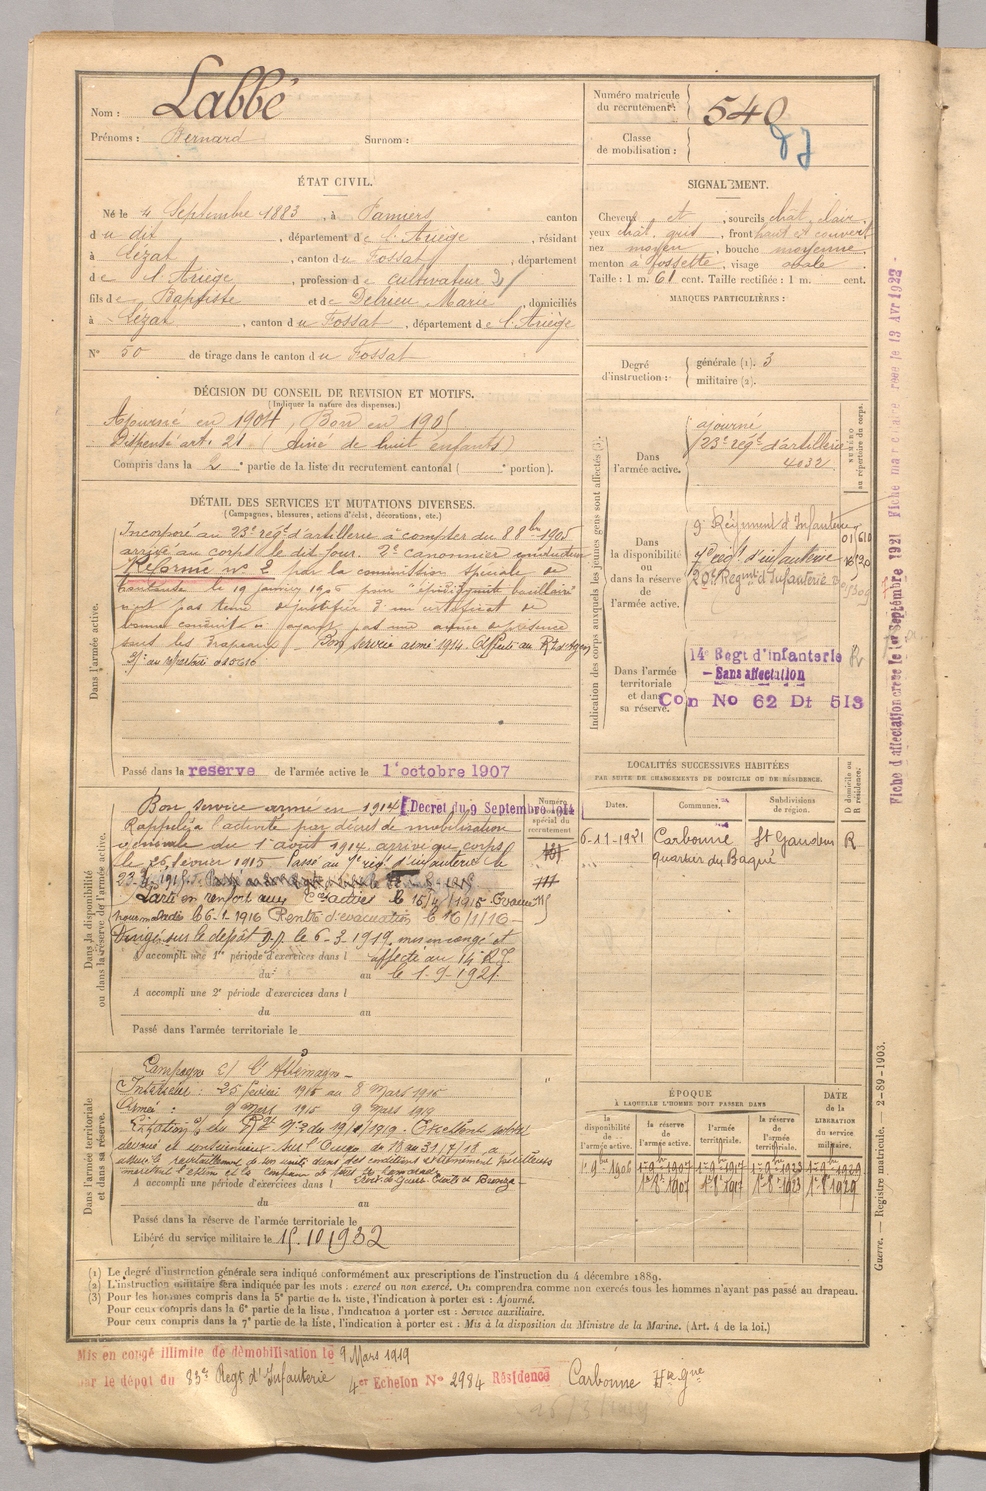 Nom : Labbé
Prénoms : Bernard Surnom :
Numéro matricule du recrutement : 540
Classe de mobilisation :
ÉTAT CIVIL.
Né le 4 Septembre 1883, à Pamiers canton
du dit, département de l'Ariège, résidant
à Lézat, canton du Fossat, département
de l'Ariège, profession de cultivateur
fils de Baptiste et de Debrieu Marie, domiciliés
à Lézat, canton du Fossat, département de l'Ariège
N° 50 de tirage dans le canton du Fossat
SIGNALEMENT.
Cheveux et, sourcils chât. clair
yeux chât. gris, front haut et couvert
nez moyen, bouche moyenne
menton à fossette, visage ovale
Taille : 1 m. 61 cent. Taille rectifiée : 1 m. cent.
MARQUES PARTICULIÈRES :
Degré d'instruction : générale (1). 3
militaire (2).
DÉCISION DU CONSEIL DE REVISION ET MOTIFS.
(Indiquer la nature des dispenses.)
Ajourné en 1904, Bon en 1905
Dispensé art. 21 (aîné de huit enfants)
Compris dans la 2e partie de la liste du recrutement cantonal ( portion).
DÉTAIL DES SERVICES ET MUTATIONS DIVERSES.
(Campagnes, blessures, actions d'éclat, décorations, etc.)
Dans l'armée active.
Incorporé au 23e régt d'artillerie à compter du 8 8bre 1905
arrivé au corps le dit jour. 2e canonnier conducteur
Réformé n° 2 par la commission spéciale de
le 19 janvier 1906 pour
pas tenu de justifier d'un certificat de
bonne conduite n'ayant pas une année de présence
sous les drapeaux. Bon service armé 1914. Affecté au Rt d'Agen
au répertoire
Passé dans la reserve de l'armée active le 1er octobre 1907
Indication des corps auxquels les jeunes gens sont affectés (3).
NUMÉRO au répertoire du corps.
Dans l'armée active.
ajourné
23e régt d'artillerie
4032
Dans la disponibilité ou dans la réserve de l'armée active.
9e Régiment d'Infanterie
7e régt d'infanterie
20e Régiment d'Infanterie
Dans l'armée territoriale et dans sa réserve.
14e Regt d'infanterie
– Sans affectation
Con No 62 Dt 513
Fiche d'affectation créée le 1er Septembre 1921
le 13 Avr 1922 -
Dans la disponibilité ou dans la réserve de l'armée active.
Bon service armé en 1914 [Decret du 9 Septembre 1914
Numéro spécial du recrutement
Rappelé à l'activité par décret de mobilisation
générale du 1er août 1914. arrivé au corps
le 25 février 1915 – Passé au 7e régt d'infanterie le
Parti en renfort aux armées le 15/4/1915 Evacué
pour maladie le 6-1-1916 Rentré d'évacuation le 16/1/16 –
Dirigé sur le dépôt D.P. le 6-3-1919, mis en congé et
affecté au 14e R.I.
le 1-9-1921.
A accompli une 1re période d'exercices dans l
du au
A accompli une 2e période d'exercices dans l
du au
Passé dans l'armée territoriale le
LOCALITÉS SUCCESSIVES HABITÉES
PAR SUITE DE CHANGEMENTS DE DOMICILE OU DE RÉSIDENCE.
Dates. Communes. Subdivisions de région. D domicile ou R résidence.
6-11-1921 Carbonne St Gaudens R
quartier du Baqué
Dans l'armée territoriale et dans sa réserve.
Campagne c/ l'Allemagne –
Intérieur : 25 février 1915 au 8 Mars 1915
Armée : 9 Mars 1915 9 Mars 1919
Citation o/ du Rgt du 19/1/1919 – Excellent soldat
dévoué et consciencieux. Sur l'Ourcq, du 18 au 31/7/18, a
assuré le ravitaillement de son unité dans des conditions extrêmement
méritant l'estime et la confiance de tous ses camarades.
Croix de Guerre Etoile de Bronze –
A accompli une période d'exercices dans l
du au
Passé dans la réserve de l'armée territoriale le
Libéré du service militaire le 15.10.1932
ÉPOQUE
À LAQUELLE L'HOMME DOIT PASSER DANS
la disponibilité de l'armée active. la réserve de l'armée active. l'armée territoriale. la réserve de l'armée territoriale.
DATE de la LIBÉRATION du service militaire.
1er 9bre 1906 1er 9bre 1907 1er 9bre 1917 1er 9bre 1923 1er 9bre 1929
1er 8bre 1907 1er 8bre 1917 1er 8bre 1923 1er 8bre 1929
Guerre. — Registre matricule. 2-89-1903.
(1) Le degré d'instruction générale sera indiqué conformément aux prescriptions de l'instruction du 4 décembre 1889.
(2) L'instruction militaire sera indiquée par les mots : exercé ou non exercé. On comprendra comme non exercés tous les hommes n'ayant pas passé au drapeau.
(3) Pour les hommes compris dans la 5e partie de la liste, l'indication à porter est : Ajourné.
Pour ceux compris dans la 6e partie de la liste, l'indication à porter est : Service auxiliaire.
Pour ceux compris dans la 7e partie de la liste, l'indication à porter est : Mis à la disposition du Ministre de la Marine. (Art. 4 de la loi.)
Mis en congé illimité de démobilisation le 9 Mars 1919
par le dépôt du 83e Regt d'Infanterie 4er Echelon N° 2984 Résidence Carbonne Hte Gne